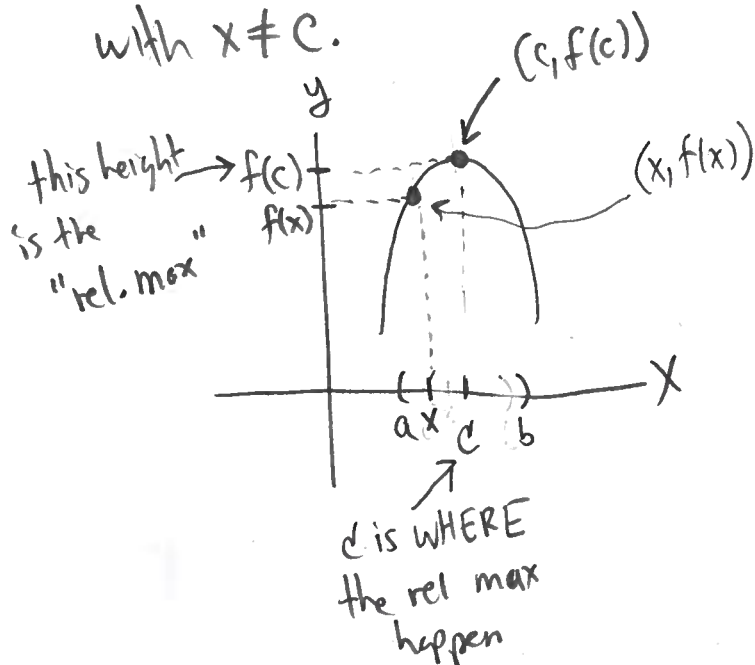 with x ≠ c.
(c, f(c))
y
this height → f(c)
is the
"rel. max"
f(x)
(x, f(x))
X
( a x c b )
c is WHERE
the rel max
happen